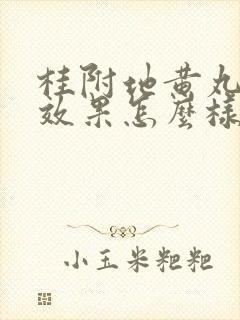 桂附地黄丸
效果怎麼樣
小玉米粑粑